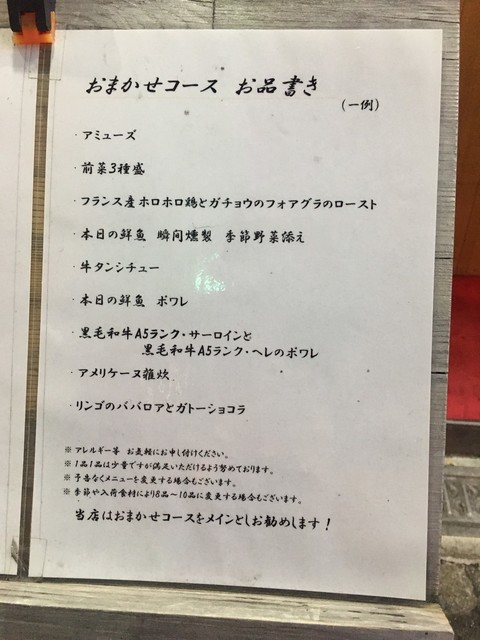 おまかせコース お品書き
(一例)
・アミューズ
・前菜3種盛
・フランス産ホロホロ鶏とガチョウのフォアグラのロースト
・本日の鮮魚 瞬間燻製 季節野菜添え
・牛タンシチュー
・本日の鮮魚 ポワレ
・黒毛和牛A5ランク・サーロインと
黒毛和牛A5ランク・ヘレのポワレ
・アメリケーヌ雑炊
・リンゴのババロアとガトーショコラ
※ アレルギー等 お気軽にお申し付けください。
※ 1品1品は少量ですが満足いただけるよう努めております。
※ 予告なくメニューを変更する場合もございます。
※ 季節や入荷食材により8品～10品に変更する場合もございます。
当店はおまかせコースをメインとしお勧めします!